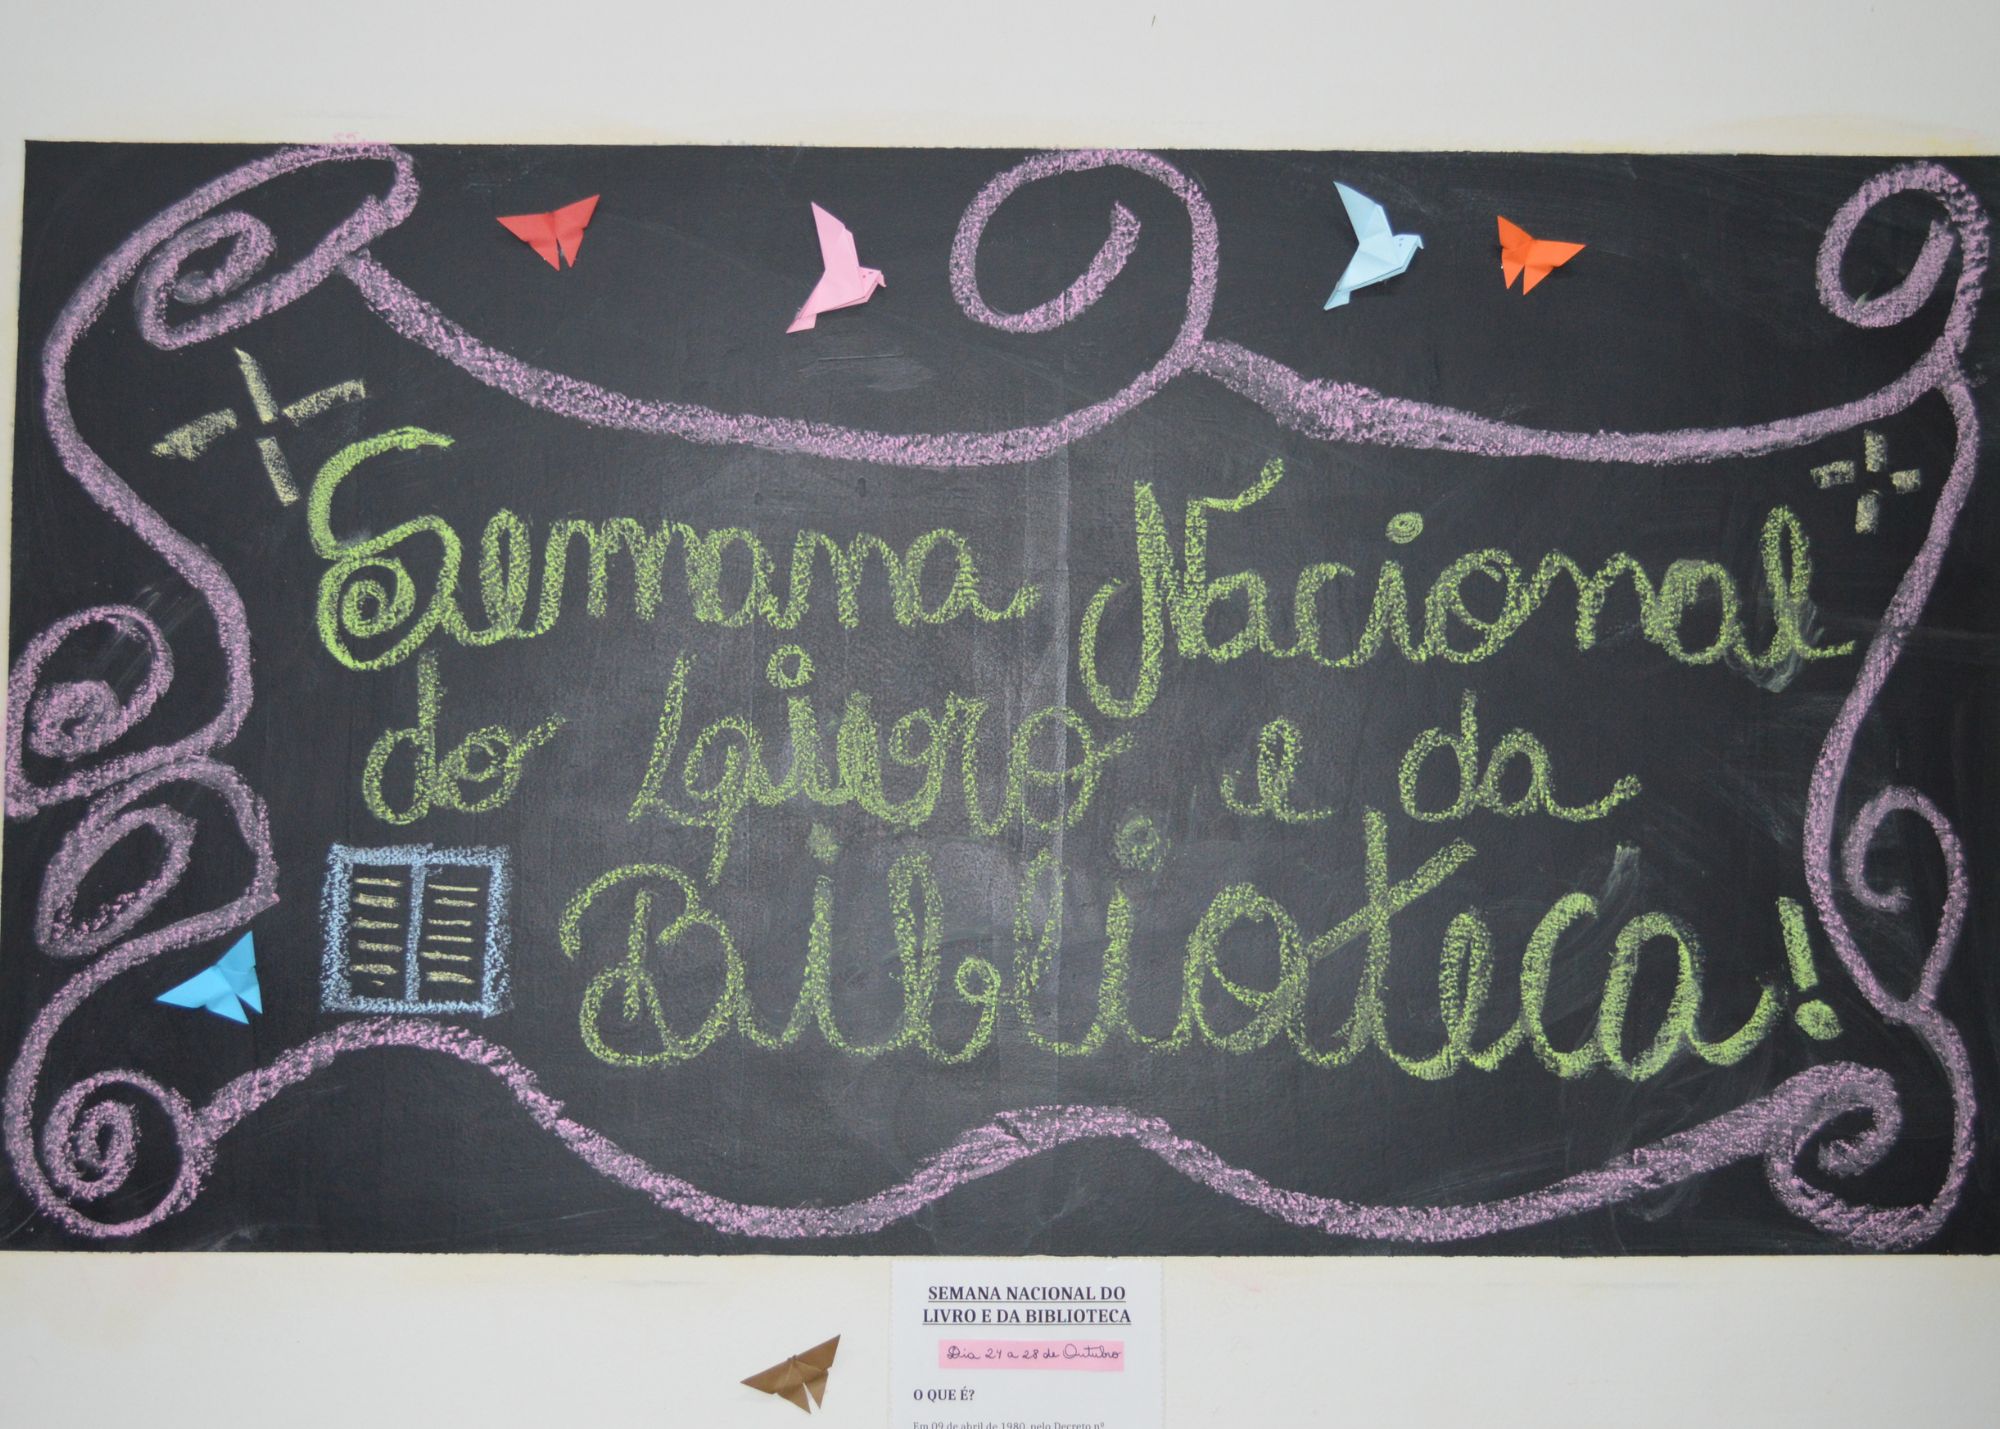 Semana Nacional
do Livro e da
Biblioteca!
SEMANA NACIONAL DO
LIVRO E DA BIBLIOTECA
Dia 24 a 28 de Outubro
O QUE É?
Em 09 de abril de 1980, pelo Decreto nº